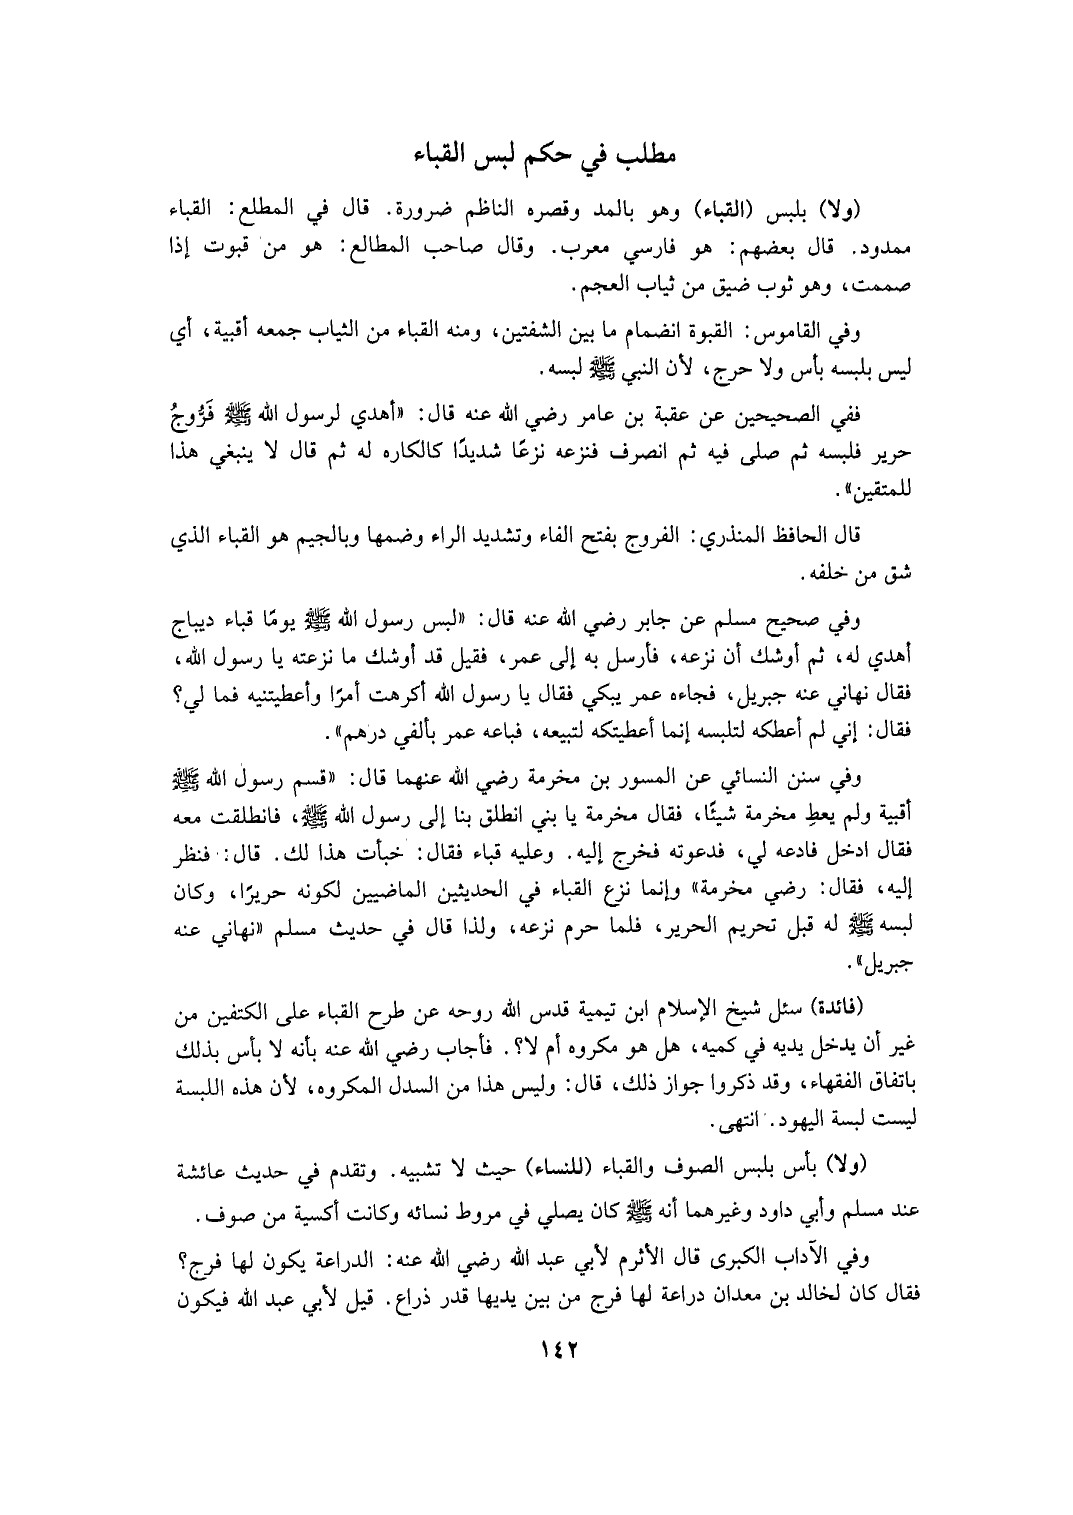 مطلب في حكم لبس القباء
(ولا) بلبس (القباء) وهو بالمد وقصره الناظم ضرورة. قال في المطلع: القباء
ممدود. قال بعضهم: هو فارسي معرب. وقال صاحب المطالع: هو من قبوت إذا
صممت، وهو ثوب ضيق من ثياب العجم.
وفي القاموس: القبوة انضمام ما بين الشفتين، ومنه القباء من الثياب جمعه أقبية، أي
ليس بلبسه بأس ولا حرج، لأن النبي ﷺ لبسه.
ففي الصحيحين عن عقبة بن عامر رضي الله عنه قال: «أهدي لرسول الله ﷺ فَرُّوجُ
حرير فلبسه ثم صلى فيه ثم انصرف فنزعه نزعًا شديدًا كالكاره له ثم قال لا ينبغي هذا
للمتقين».
قال الحافظ المنذري: الفروج بفتح الفاء وتشديد الراء وضمها وبالجيم هو القباء الذي
شق من خلفه.
وفي صحيح مسلم عن جابر رضي الله عنه قال: «لبس رسول الله ﷺ يومًا قباء ديباج
أهدي له، ثم أوشك أن نزعه، فأرسل به إلى عمر، فقيل قد أوشك ما نزعته يا رسول الله،
فقال نهاني عنه جبريل، فجاءه عمر يبكي فقال يا رسول الله أكرهت أمرًا وأعطيتنيه فما لي؟
فقال: إني لم أعطكه لتلبسه إنما أعطيتكه لتبيعه، فباعه عمر بألفي درهم».
وفي سنن النسائي عن المسور بن مخرمة رضي الله عنهما قال: «قسم رسول الله ﷺ
أقبية ولم يعطِ مخرمة شيئًا، فقال مخرمة يا بني انطلق بنا إلى رسول الله ﷺ، فانطلقت معه
فقال ادخل فادعه لي، فدعوته فخرج إليه. وعليه قباء فقال: خبأت هذا لك. قال: فنظر
إليه، فقال: رضي مخرمة» وإنما نزع القباء في الحديثين الماضيين لكونه حريرًا، وكان
لبسه ﷺ له قبل تحريم الحرير، فلما حرم نزعه، ولذا قال في حديث مسلم «نهاني عنه
جبريل».
(فائدة) سئل شيخ الإسلام ابن تيمية قدس الله روحه عن طرح القباء على الكتفين من
غير أن يدخل يديه في كميه، هل هو مكروه أم لا؟. فأجاب رضي الله عنه بأنه لا بأس بذلك
باتفاق الفقهاء، وقد ذكروا جواز ذلك، قال: وليس هذا من السدل المكروه، لأن هذه اللبسة
ليست لبسة اليهود. انتهى.
(ولا) بأس بلبس الصوف والقباء (للنساء) حيث لا تشبيه. وتقدم في حديث عائشة
عند مسلم وأبي داود وغيرهما أنه ﷺ كان يصلي في مروط نسائه وكانت أكسية من صوف.
وفي الآداب الكبرى قال الأثرم لأبي عبد الله رضي الله عنه: الدراعة يكون لها فرج؟
فقال كان لخالد بن معدان دراعة لها فرج من بين يديها قدر ذراع. قيل لأبي عبد الله فيكون
١٤٢